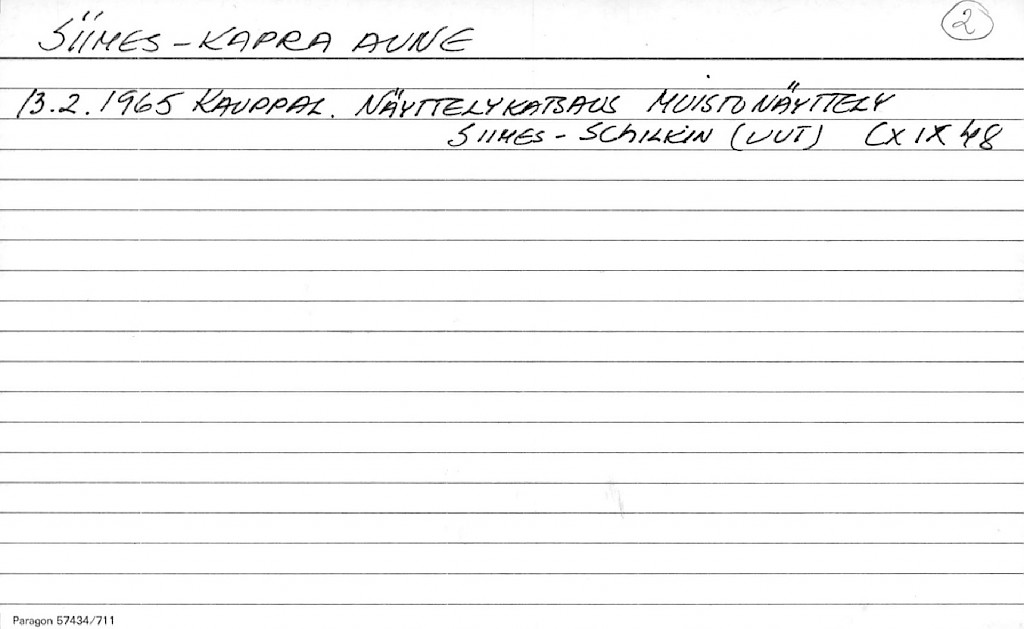 SIIMES-KAPRA AUNE
2
13.2.1965 KAUPPAL. NÄYTTELYKATSAUS MUISTONÄYTTELY
SIIMES-SCHILKIN (UUT) CXIX 48
Paragon 57434/711